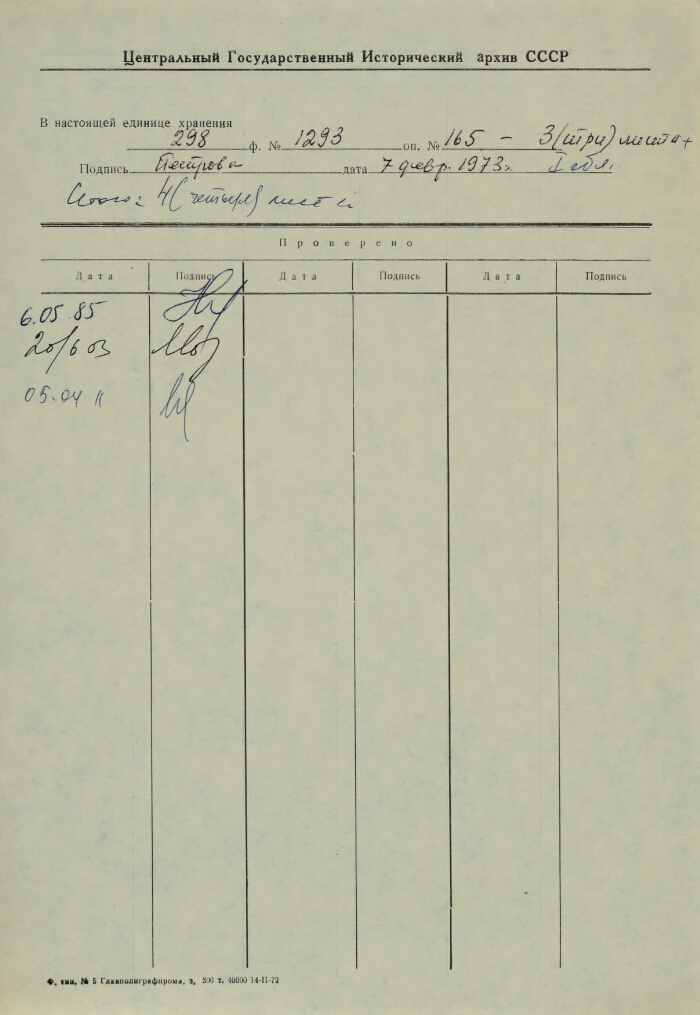 Центральный Государственный Исторический архив СССР
В настоящей единице хранения
298 ф. № 1293 оп. № 165 – 3 (три) листа +
Подпись Петрова дата 7 февр. 1973г. I обл.
Итого: 4 (четыре) листа
Проверено
Дата Подпись Дата Подпись Дата Подпись
6.05.85
20/6 03
05.04 11
Ф. тип. № 5 Главполиграфпрома, з. 506 т. 40000 14-II-72